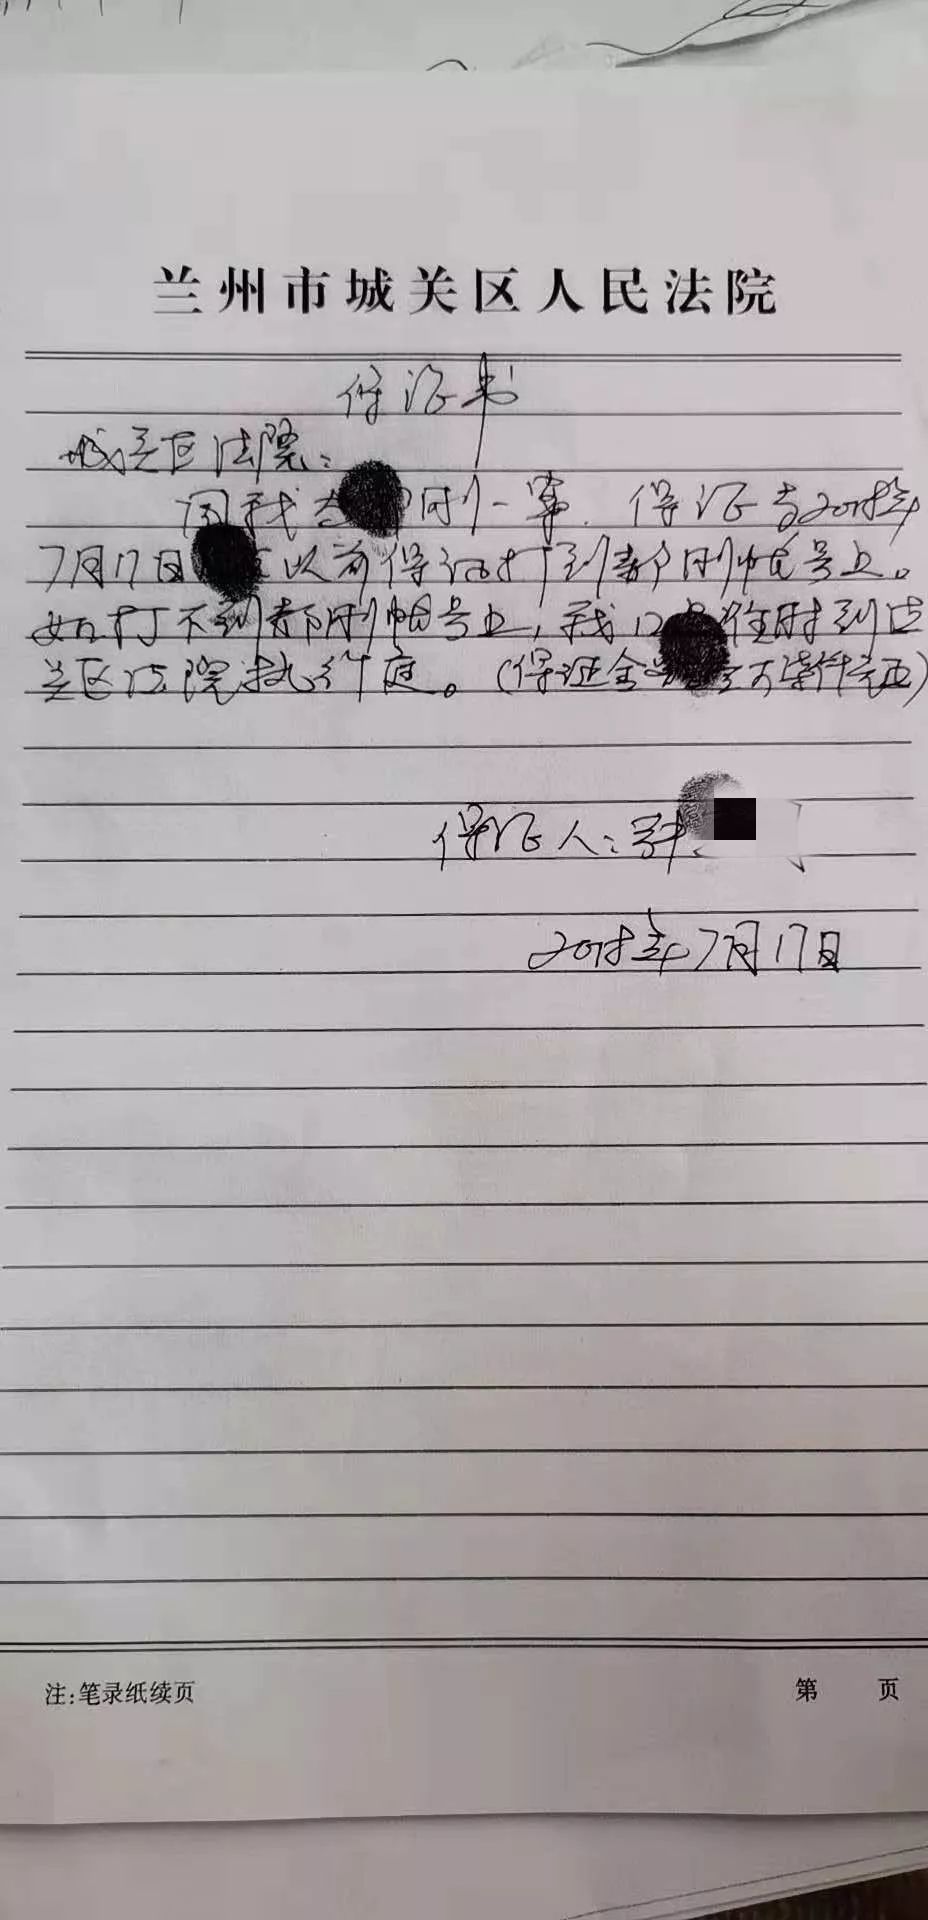 兰州市城关区人民法院
保证书
城关区法院：
因我 刚一事.保证 2018年
7月17日 以前保证打到郝刚帐号上。
如打不到郝刚帐号上,我 准时到城
关区法院执行庭。(保证金 万柒仟元正)
保证人：
2018年7月17日
注:笔录纸续页
第 页